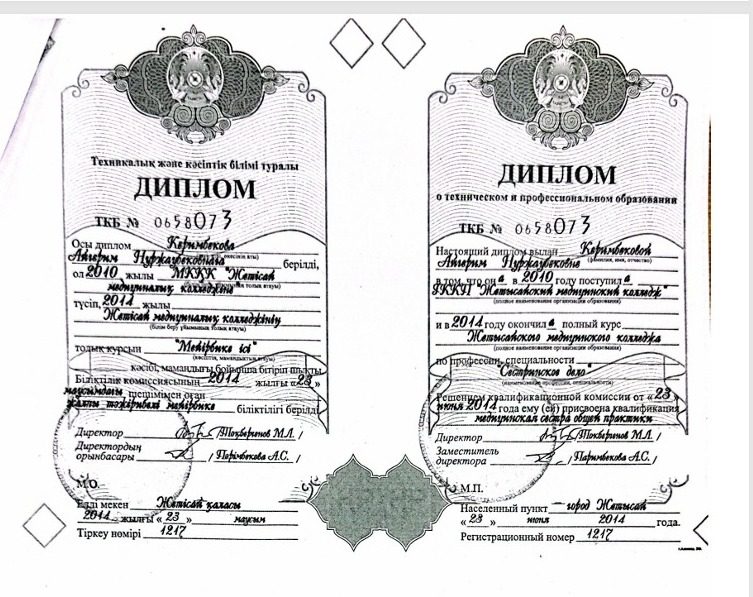 Техникалық және кәсіптік білімі туралы
ДИПЛОМ
ТКБ № 0658073
Осы диплом Керимбекова
Айгерим Нуржаубековнаға берілді,
ол 2010 жылы МККК "Жетісай
медициналық колледжіне
түсіп, 2014 жылы
Жетісай медициналық колледжінің
(білім беру ұйымының толық атауы)
толық курсын "Мейірбике ісі"
(кәсіптік, мамандықтың атауы)
кәсіпі, мамандығы бойынша бітіріп шықты
Біліктілік комиссиясының 2014 жылғы «23»
маусымдағы шешімімен оған
жалпы тәжірибелі мейірбике біліктілігі берілді
Директор / Токберенов М.Л. /
Директордың
орынбасары / Парімбекова А.С. /
М.О.
Елді мекен Жетісай қаласы
2014 жылғы « 23 » маусым
Тіркеу нөмірі 1217
ДИПЛОМ
о техническом и профессиональном образовании
ТКБ № 0658073
Настоящий диплом выдан Керимбековой
(фамилия, имя, отчество)
Айгерим Нуржаубековне
в том, что он а в 2010 году поступил а
ГККП "Жетысайский медицинский колледж"
(полное наименование организации образования)
и в 2014 году окончил а полный курс
Жетысайского медицинского колледжа
(полное наименование организации образования)
по профессии, специальности
"Сестринское дело"
(наименование профессии, специальности)
Решением квалификационной комиссии от « 23
июня 2014 года ему (ей) присвоена квалификация
медицинская сестра общей практики
Директор / Токберенов М.Л. /
Заместитель
директора / Паримбекова А.С. /
М.П.
Населенный пункт город Жетысай
« 23 » июня 2014 года.
Регистрационный номер 1217